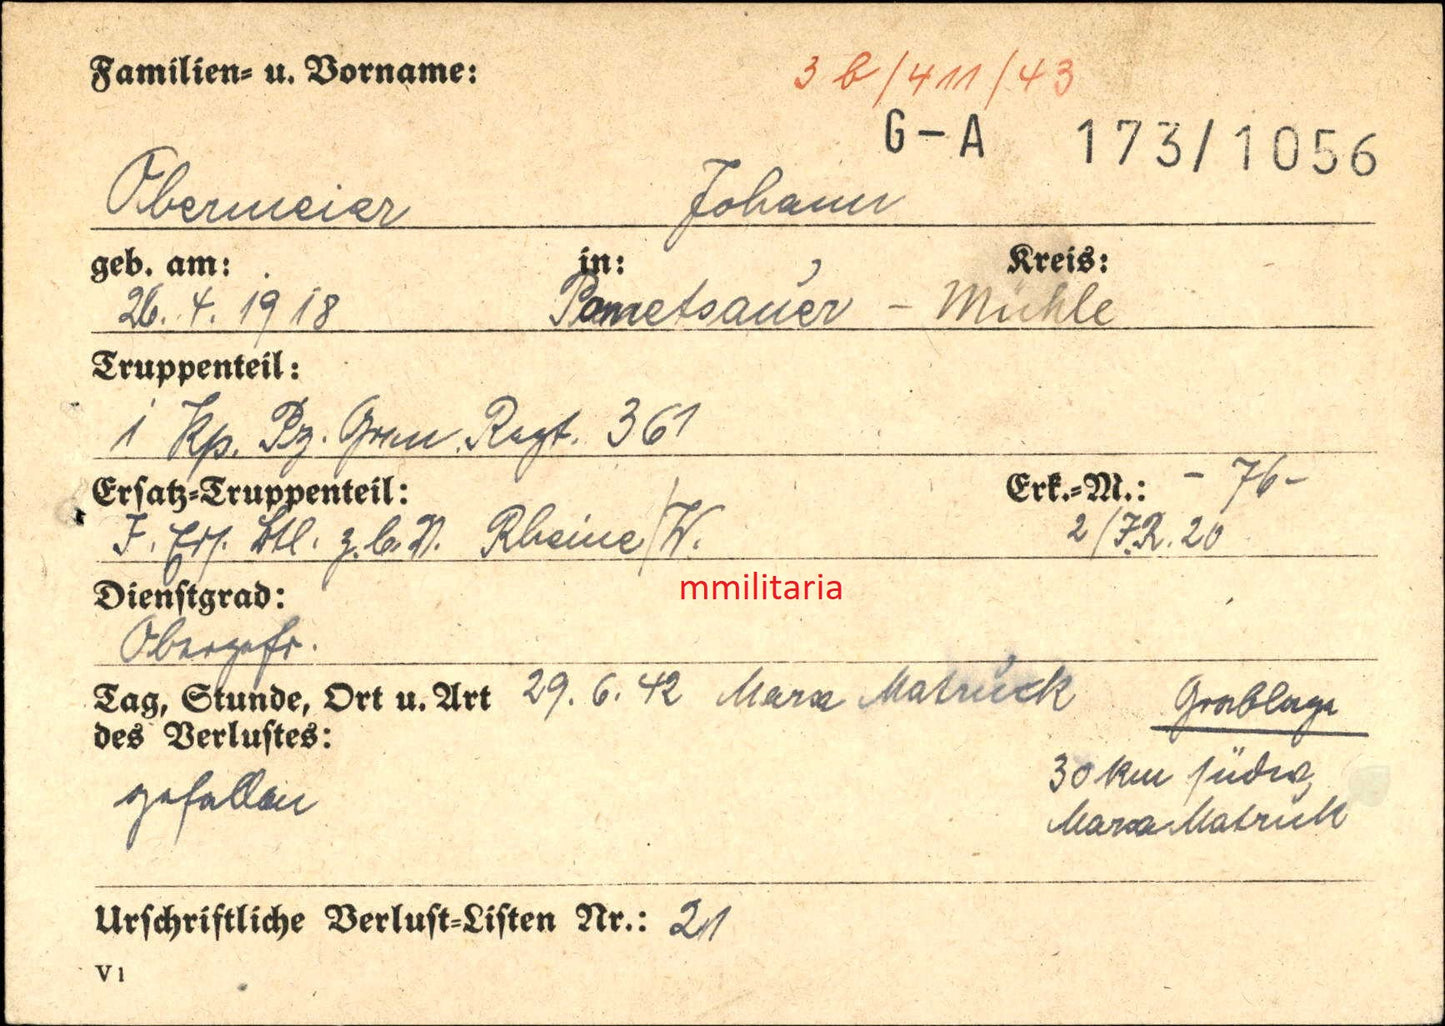 Familien= u. Vorname:
3 b/411/43
G-A 173/1056
Obermeier Johann
geb. am: in: Kreis:
26. 4. 1918 Pametsauer - Mühle
Truppenteil:
1 Kp. Pz. Gren. Regt. 361
Ersatz=Truppenteil: Erk.=M.: - 76 -
J. Ers. Btl. z.b.V. Rheine/W. 2/J.R. 20
mmilitaria
Dienstgrad:
Obergefr.
Tag, Stunde, Ort u. Art 29. 6. 42 Marsa Matruck Grablage
des Verlustes:
gefallen 30 km südw.
Marsa Matruk
Urschriftliche Verlust=Listen Nr.: 21
V1